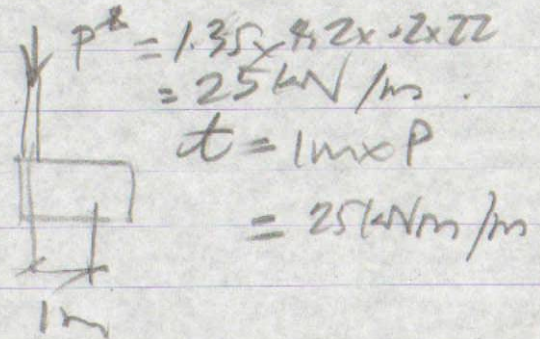 P* = 1.35x4.2x.2x22
= 25kN/m.
t = 1mxP
= 25kNm/m
1m